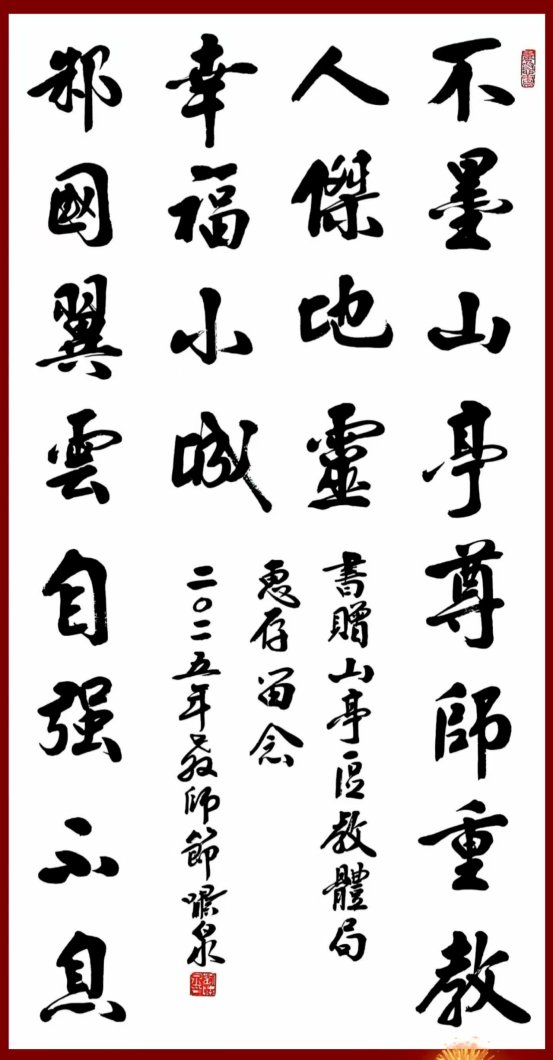 不墨山亭尊師重教
人傑地靈
幸福小城
邾國翼雲自强不息
書贈山亭區教體局
惠存留念
二〇二五年教師節泉